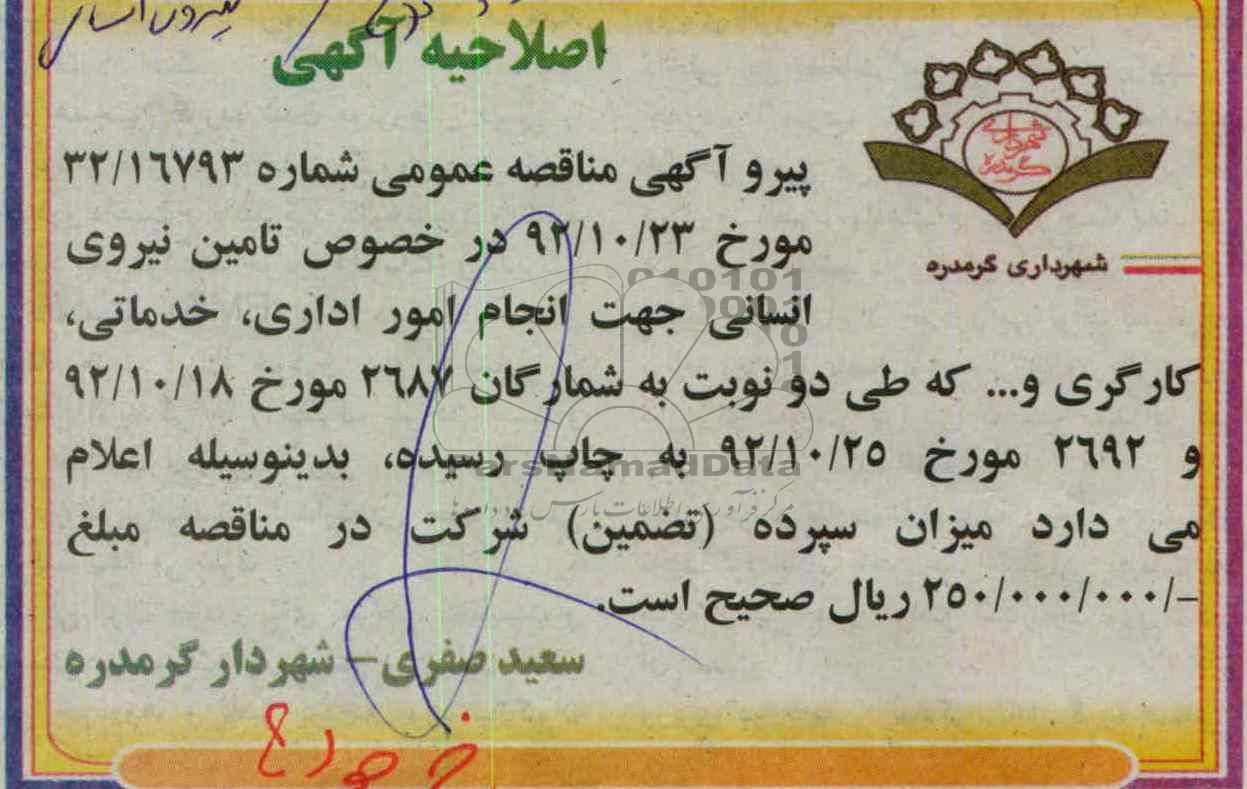 نیروی انسانی
اصلاحیه آگهی
شهرداری گرمدره
شهرداری گرمدره
پیرو آگهی مناقصه عمومی شماره ۳۲/۱٦۷۹۳
مورخ ۹۲/۱۰/۲۳ در خصوص تامین نیروی
انسانی جهت انجام امور اداری، خدماتی،
کارگری و... که طی دو نوبت به شمارگان ۲٦۸۷ مورخ ۹۲/۱۰/۱۸
و ۲٦۹۲ مورخ ۹۲/۱۰/۲۵ به چاپ رسیده، بدینوسیله اعلام
می دارد میزان سپرده (تضمین) شرکت در مناقصه مبلغ
-/۲۵۰/۰۰۰/۰۰۰ ریال صحیح است.
سعید صفری- شهردار گرمدره
ParsNamadData
مرکز فرآوری اطلاعات پارس نماد داده ها